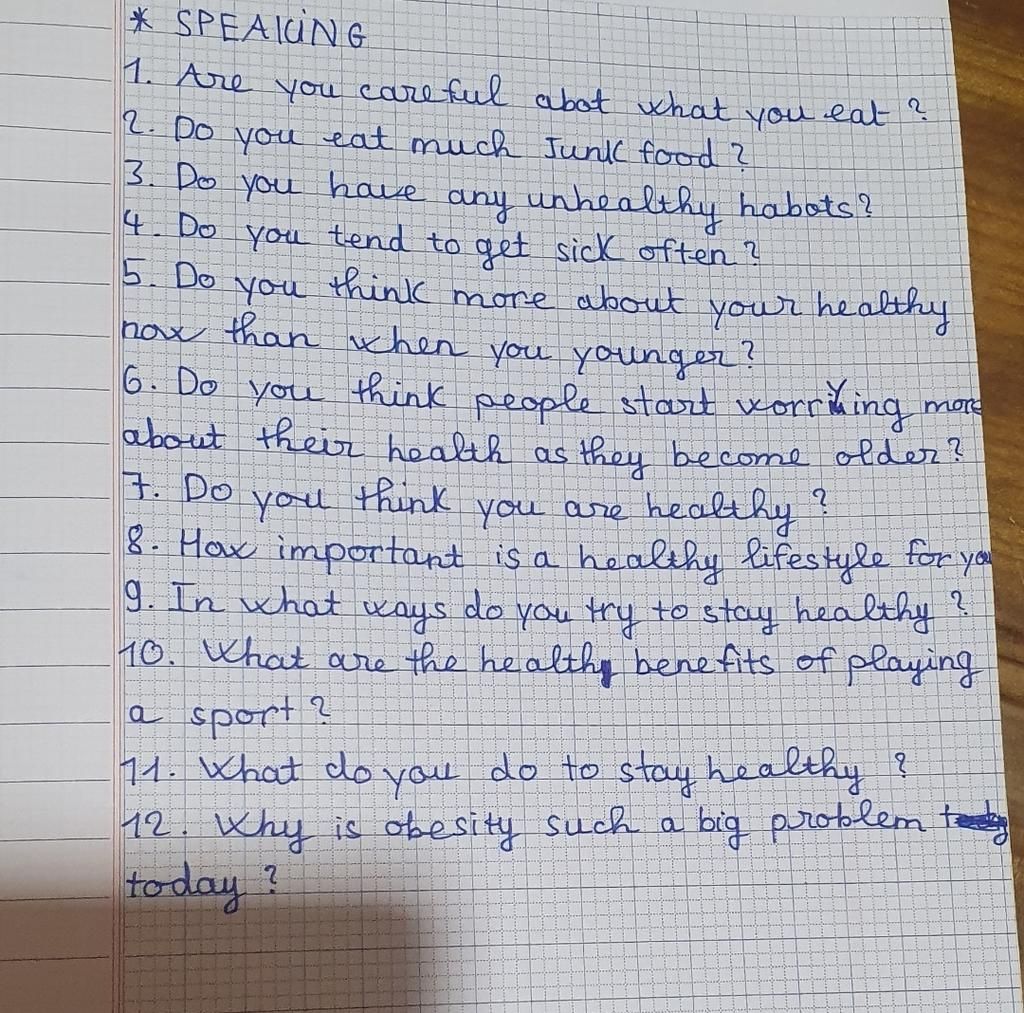 * SPEAKING
1. Are you careful abot what you eat ?
2. Do you eat much Junk food ?
3. Do you have any unhealthy habots?
4. Do you tend to get sick often ?
5. Do you think more about your healthy
now than when you younger ?
6. Do you think people start worrying more
about their health as they become older ?
7. Do you think you are healthy ?
8. How important is a healthy lifestyle for you
9. In what ways do you try to stay healthy ?
10. What are the health benefits of playing
a sport ?
11. What do you do to stay healthy ?
12. Why is obesity such a big problem
today ?